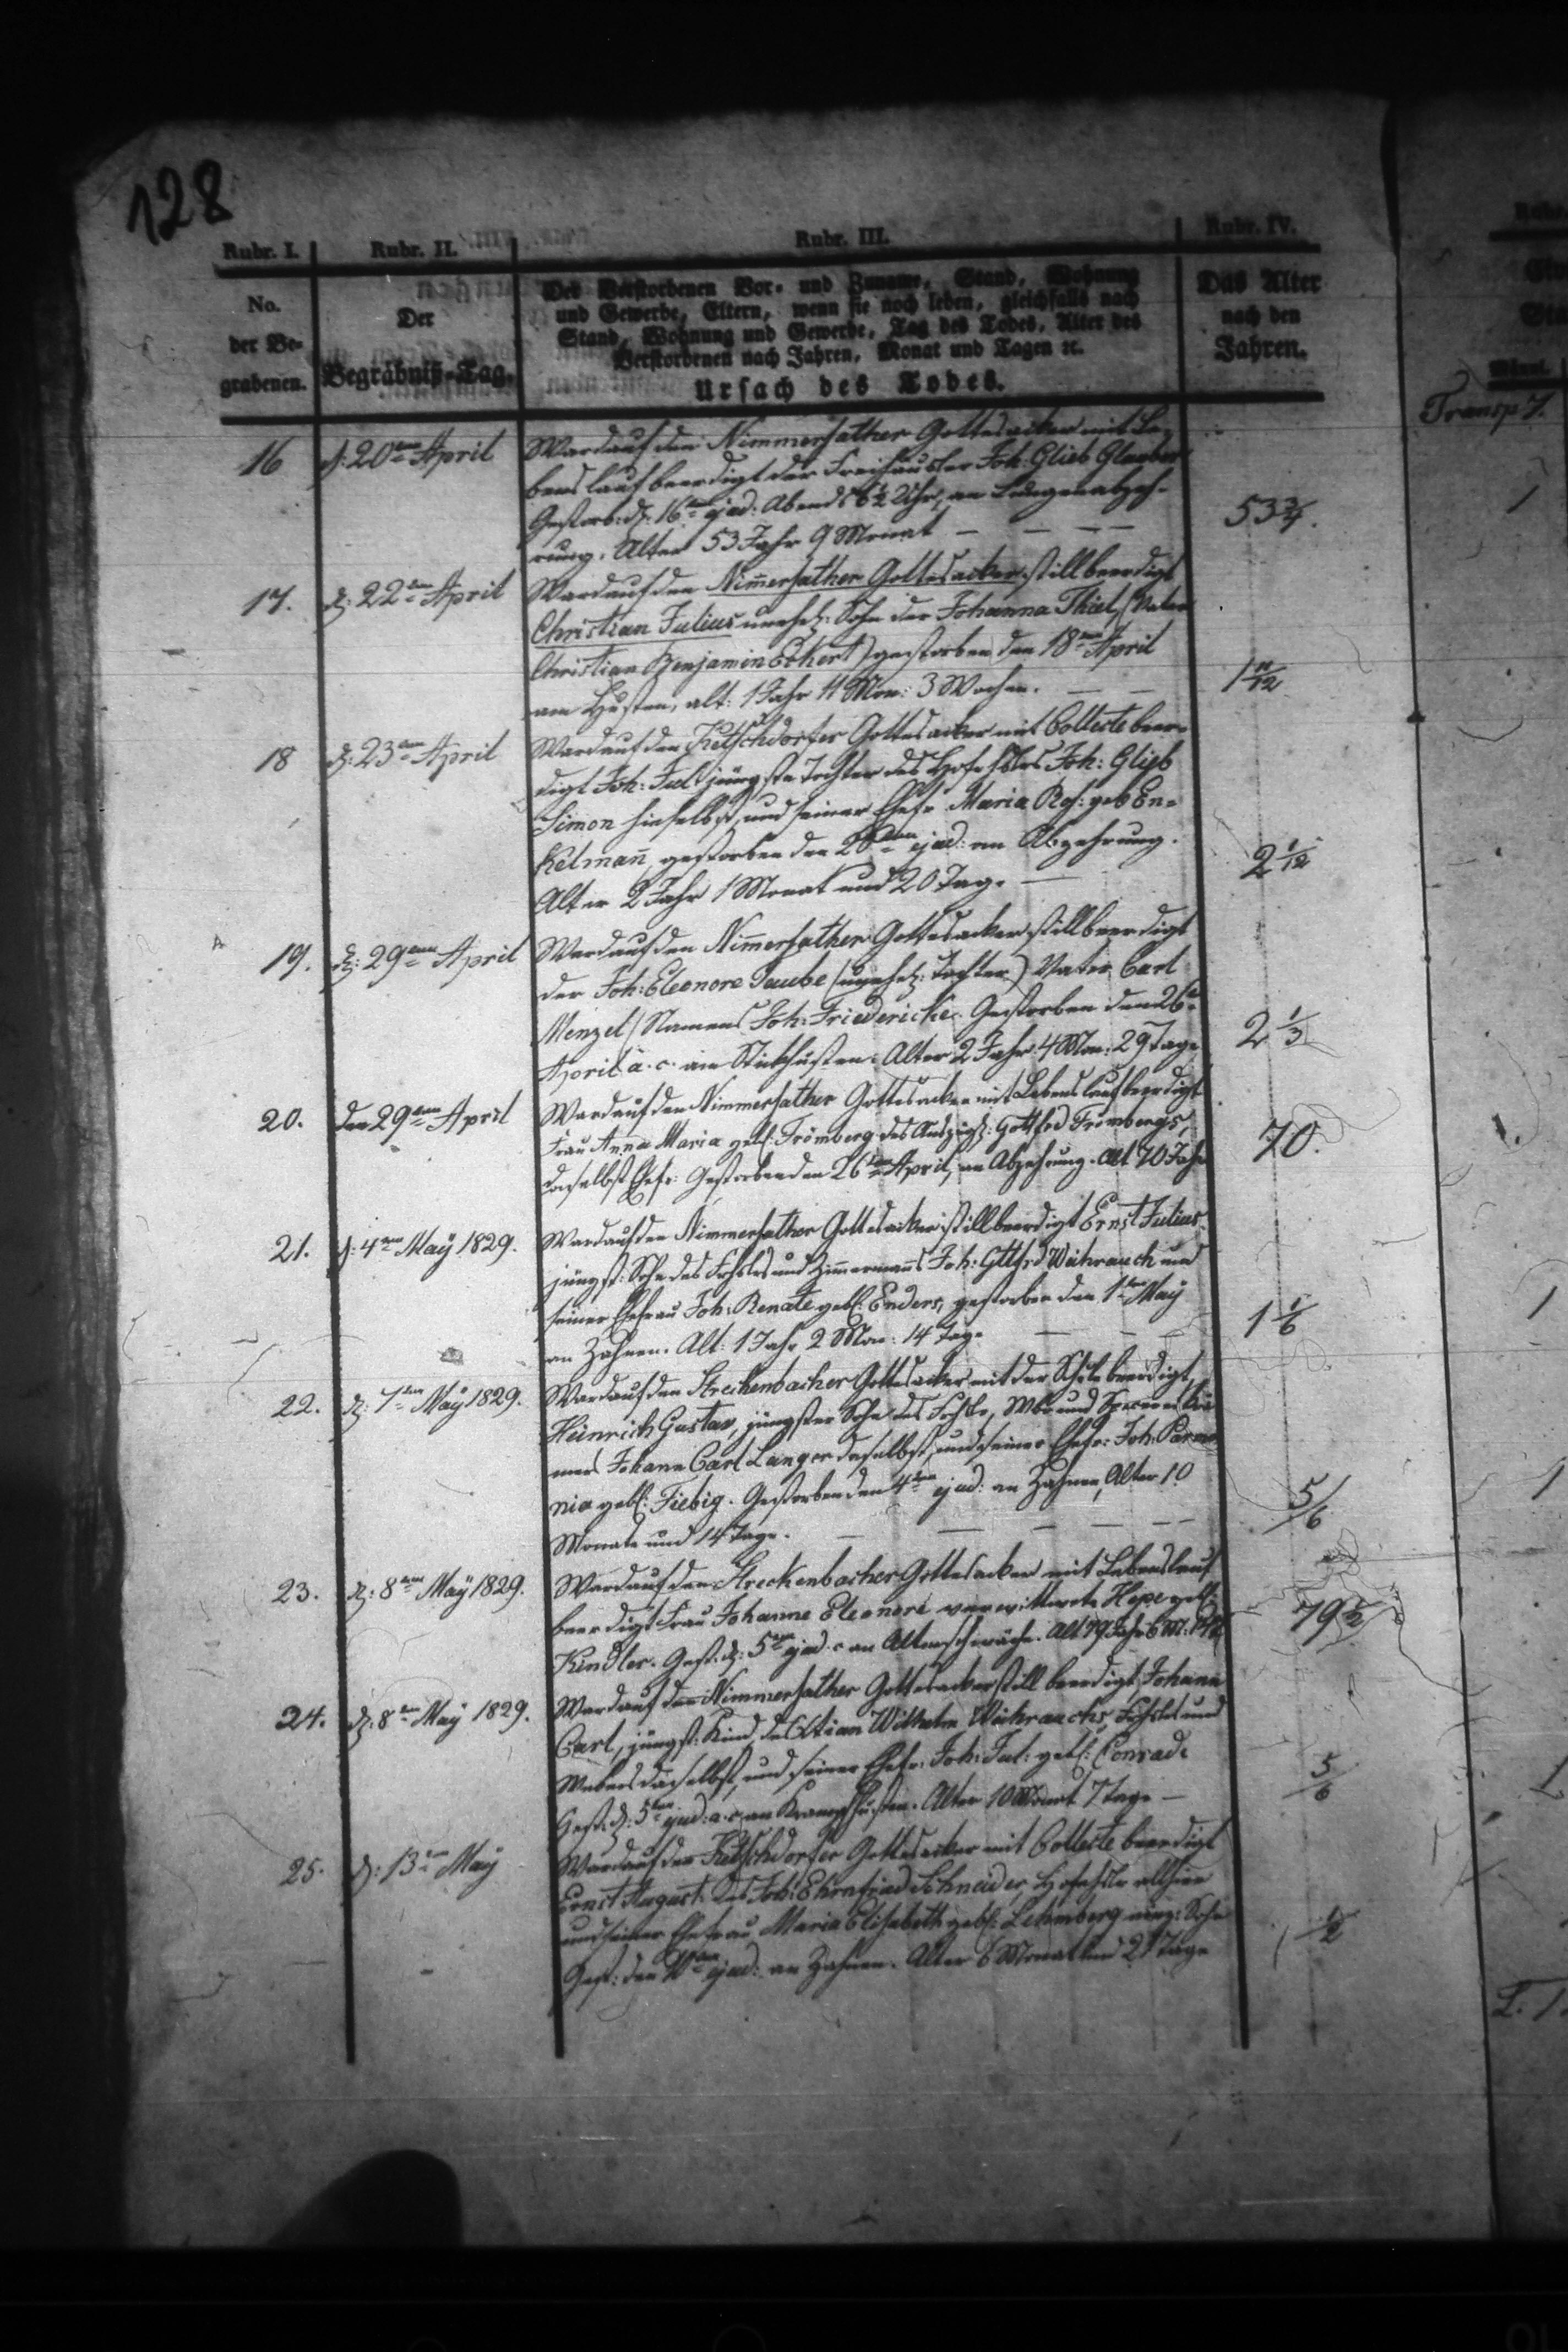 128
Rubr. I. Rubr. II. Rubr. III. Rubr. IV.
No. der Begrabenen.
Der Begräbniß-Tag.
Des Verstorbenen Vor- und Zuname, Stand, Wohnung
und Gewerbe, Eltern, wenn sie noch leben, gleichfalls nach
Stand, Wohnung und Gewerbe, Tag des Todes, Alter des
Verstorbenen nach Jahren, Monat und Tagen ꝛc.
Ursach des Todes.
Das Alter nach den Jahren.
Transp 7.
16 d: 20ten April Ward auf den Nimmersather Gottesacker mit Le-
benslauf beerdigt der Freihäusler Joh: Glieb
Gestorb: d: 16ten ejad: Abends 6½ Uhr, an Lungenabzeh-
rung. Alter 53 Jahr 9 Monat — — — — 53¾.
17. d: 22ten April Ward auf den Nim̄ersather Gottesacker still beerdigt
Christian Julius unehel: Sohn der Johanna Thiel, (Vater
Christian Benjamin Eckert) gestorben den 18ten April
am Husten, alt: 1 Jahr 11 Mon: 3 Wochen. — — 1 11/12
18 d: 23ten April Ward auf den Ketschdorfer Gottesacker mit Collecte beer-
digt Joh: Jul: jüngste Tochter des Joh: Glieb
Simon hieselbst, und seiner Ehefr. Maria Ros: geb En-
kelman̄, gestorben den 20ten ejad: an Abzehrung.
Alter 2 Jahr 1 Monat und 20 Tage — 2 1/12
19. d: 29ten April Ward auf den Nim̄ersather Gottesacker still beerdigt
der Joh: Eleonore Taube (unehel: Tochter) Vater Carl
Menzel / Namens Joh: Friedericke. Gestorben den 26t
April a. c. am Stickhusten. Alter 2 Jahr 4 Mon: 29 Tage 2⅓
20. den 29ten April Ward auf den Nimmersather Gottesacker mit Lebenslauf beerdigt
Frau Anna Maria geb: Trömberg des Gottfrd Trombergs,
daselbst Ehefr: Gestorben den 26ten April, an Abzehrung. Alt 70 Jahr 70.
21. d: 4ten Maÿ 1829. Ward auf den Nimmersather Gottesacker still beerdigt Ernst Julius
jüngst: Sohn des und Zim̄ermanns Joh: Gttfrd Weihrauch und
seiner Ehefrau Joh: Renate geb: Enders, gestorben den 1ten May
an Zahnen. Alt: 1 Jahr 2 Mon: 14 Tage — — — 1 1/6
22. d: 7ten Maÿ 1829. Ward auf den Streckenbacher Gottesacker mit der Schule beerdigt,
Heinrich Gustav, jüngster Sohn des
Johann Carl Langer daselbst, und seiner Ehefr: Joh:
nia geb: Fiebig. Gestorben den 4ten ejad: an Zahnen, Alter 10
Monate und 14 Tage. — — — — — 5/6
23. d: 8ten Maÿ 1829. Ward auf den Streckenbacher Gottesacker mit Lebenslauf
beerdigt Frau Johanne Eleonore verwittwete geb:
Kindler. Gest: d: 5ten ejad. c an Altersschwäche. Alt 79 Jahr 6 M. 79½
24. d: 8ten Maÿ 1829. Ward auf den Nimmersather Gottesacker still beerdigt Johann
Carl, jüngst: Kind, des Wilhelm Weihrauchs, und
Webers daselbst, und seiner Ehefr: Joh: Jul: geb: Conrad.
Gest: d: 5ten ejad: a. c. an Krampfhusten. Alter 10 Monat 7 Tage — 5/6
25. d: 13ten Maÿ Ward auf den Ketschdorfer Gottesacker mit Collecte beerdigt
Ernst August des Joh: Ehrnfried Schneider,
und seiner Ehefrau Maria Elisabeth geb: Lehmberg Sohn
Gest: den 10ten ejad: an Zahnen. Alter 6 Monat und 21 Tage ½